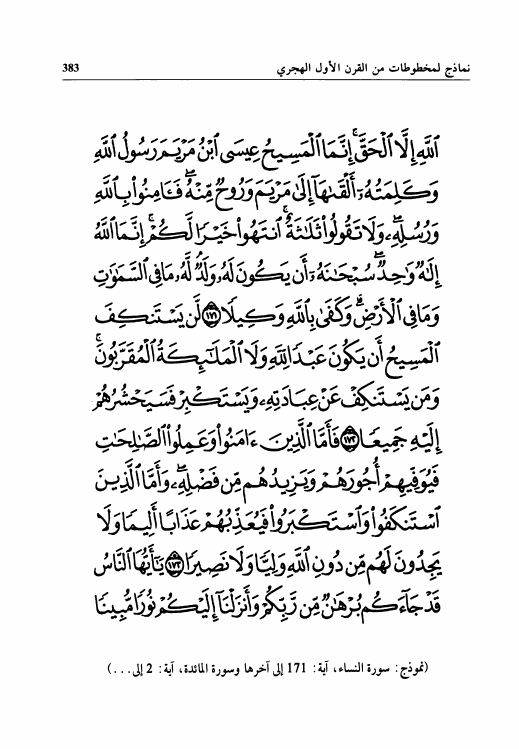 نماذج لمخطوطات من القرن الأول الهجري 383
ٱللَّهِ إِلَّا ٱلْحَقَّ ۚ إِنَّمَا ٱلْمَسِيحُ عِيسَى ٱبْنُ مَرْيَمَ رَسُولُ ٱللَّهِ
وَكَلِمَتُهُۥٓ أَلْقَىٰهَآ إِلَىٰ مَرْيَمَ وَرُوحٌ مِّنْهُ ۖ فَـَٔامِنُوا۟ بِٱللَّهِ
وَرُسُلِهِۦ ۖ وَلَا تَقُولُوا۟ ثَلَـٰثَةٌ ۚ ٱنتَهُوا۟ خَيْرًا لَّكُمْ ۚ إِنَّمَا ٱللَّهُ
إِلَـٰهٌ وَٰحِدٌ ۖ سُبْحَـٰنَهُۥٓ أَن يَكُونَ لَهُۥ وَلَدٌ ۘ لَّهُۥ مَا فِى ٱلسَّمَـٰوَٰتِ
وَمَا فِى ٱلْأَرْضِ ۗ وَكَفَىٰ بِٱللَّهِ وَكِيلًا ١٧١ لَّن يَسْتَنكِفَ
ٱلْمَسِيحُ أَن يَكُونَ عَبْدًا لِّلَّهِ وَلَا ٱلْمَلَـٰٓئِكَةُ ٱلْمُقَرَّبُونَ ۚ
وَمَن يَسْتَنكِفْ عَنْ عِبَادَتِهِۦ وَيَسْتَكْبِرْ فَسَيَحْشُرُهُمْ
إِلَيْهِ جَمِيعًا ١٧٢ فَأَمَّا ٱلَّذِينَ ءَامَنُوا۟ وَعَمِلُوا۟ ٱلصَّـٰلِحَـٰتِ
فَيُوَفِّيهِمْ أُجُورَهُمْ وَيَزِيدُهُم مِّن فَضْلِهِۦ ۖ وَأَمَّا ٱلَّذِينَ
ٱسْتَنكَفُوا۟ وَٱسْتَكْبَرُوا۟ فَيُعَذِّبُهُمْ عَذَابًا أَلِيمًا وَلَا
يَجِدُونَ لَهُم مِّن دُونِ ٱللَّهِ وَلِيًّا وَلَا نَصِيرًا ١٧٣ يَـٰٓأَيُّهَا ٱلنَّاسُ
قَدْ جَآءَكُم بُرْهَـٰنٌ مِّن رَّبِّكُمْ وَأَنزَلْنَآ إِلَيْكُمْ نُورًا مُّبِينًا
(نموذج: سورة النساء، آية: 171 إلى آخرها وسورة المائدة، آية: 2 إلى...)